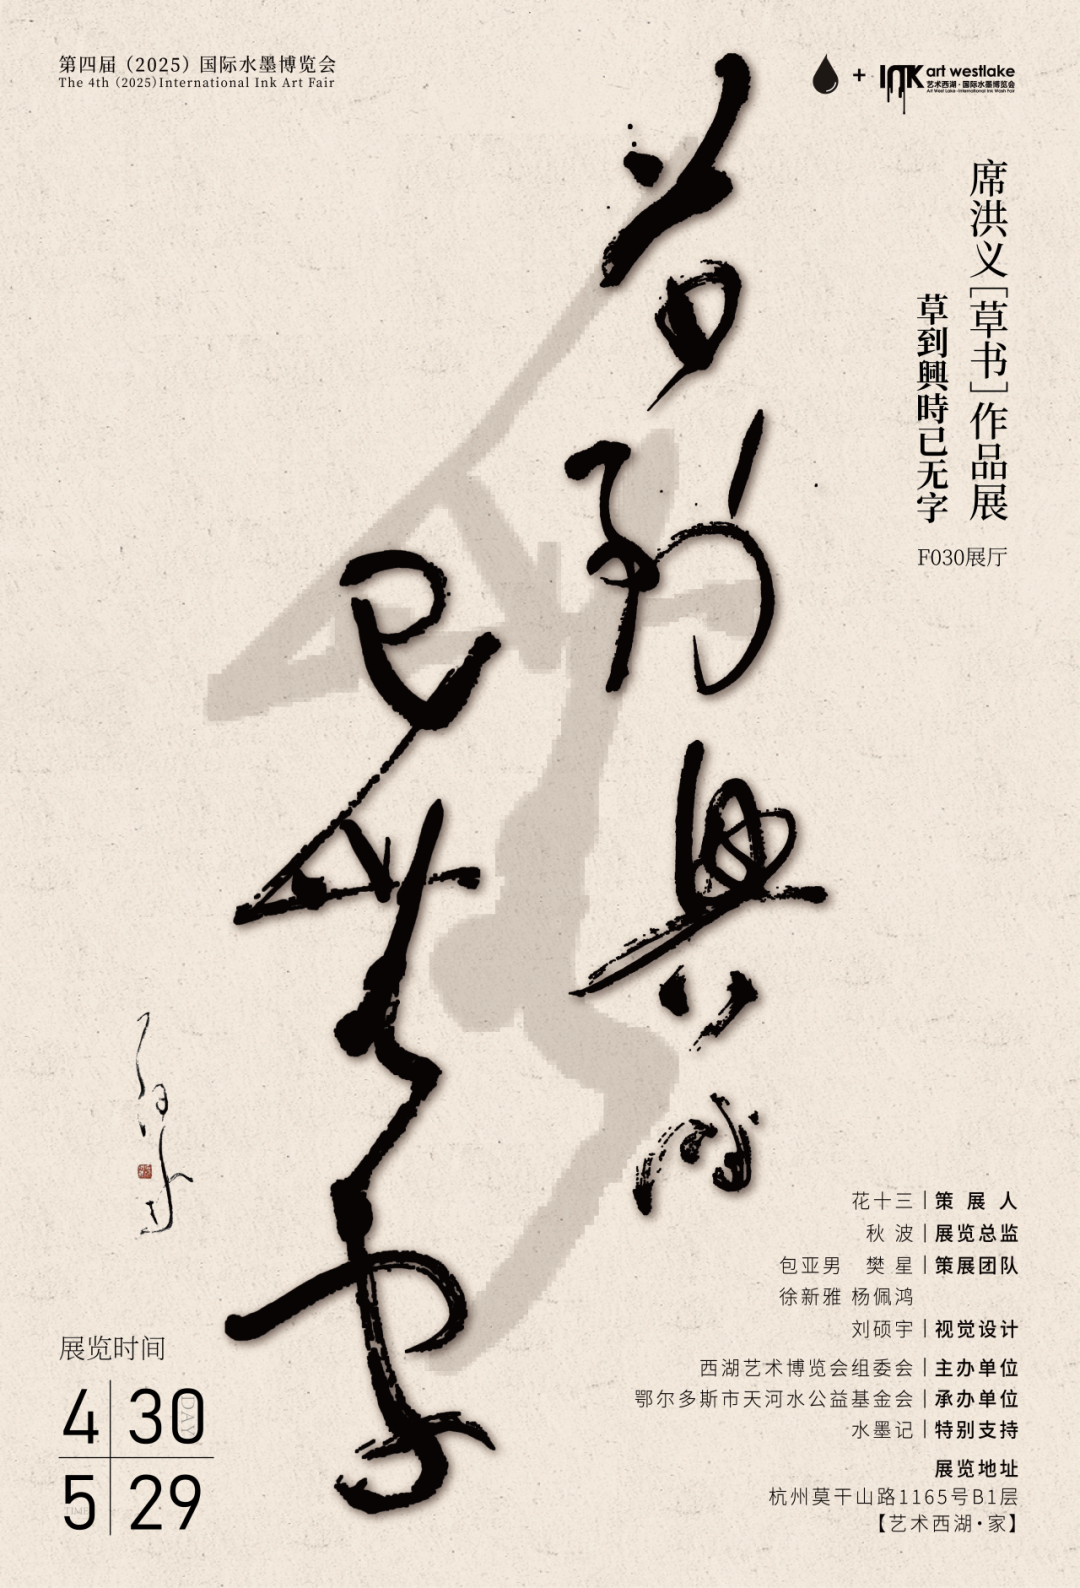 第四届（2025）国际水墨博览会
The 4th (2025)International Ink Art Fair
+
INK art westlake
艺术西湖·国际水墨博览会
Art West Lake·International Ink Wash Fair
席洪义[草书]作品展
草到興時已无字
F030展厅
草到興時
已無字
花十三|策展人
秋 波|展览总监
包亚男 樊 星|策展团队
徐新雅 杨佩鸿
刘硕宇|视觉设计
西湖艺术博览会组委会|主办单位
鄂尔多斯市天河水公益基金会|承办单位
水墨记|特别支持
展览地址
杭州莫干山路1165号B1层
【艺术西湖·家】
展览时间
4 30
DAY
5 29
TIME